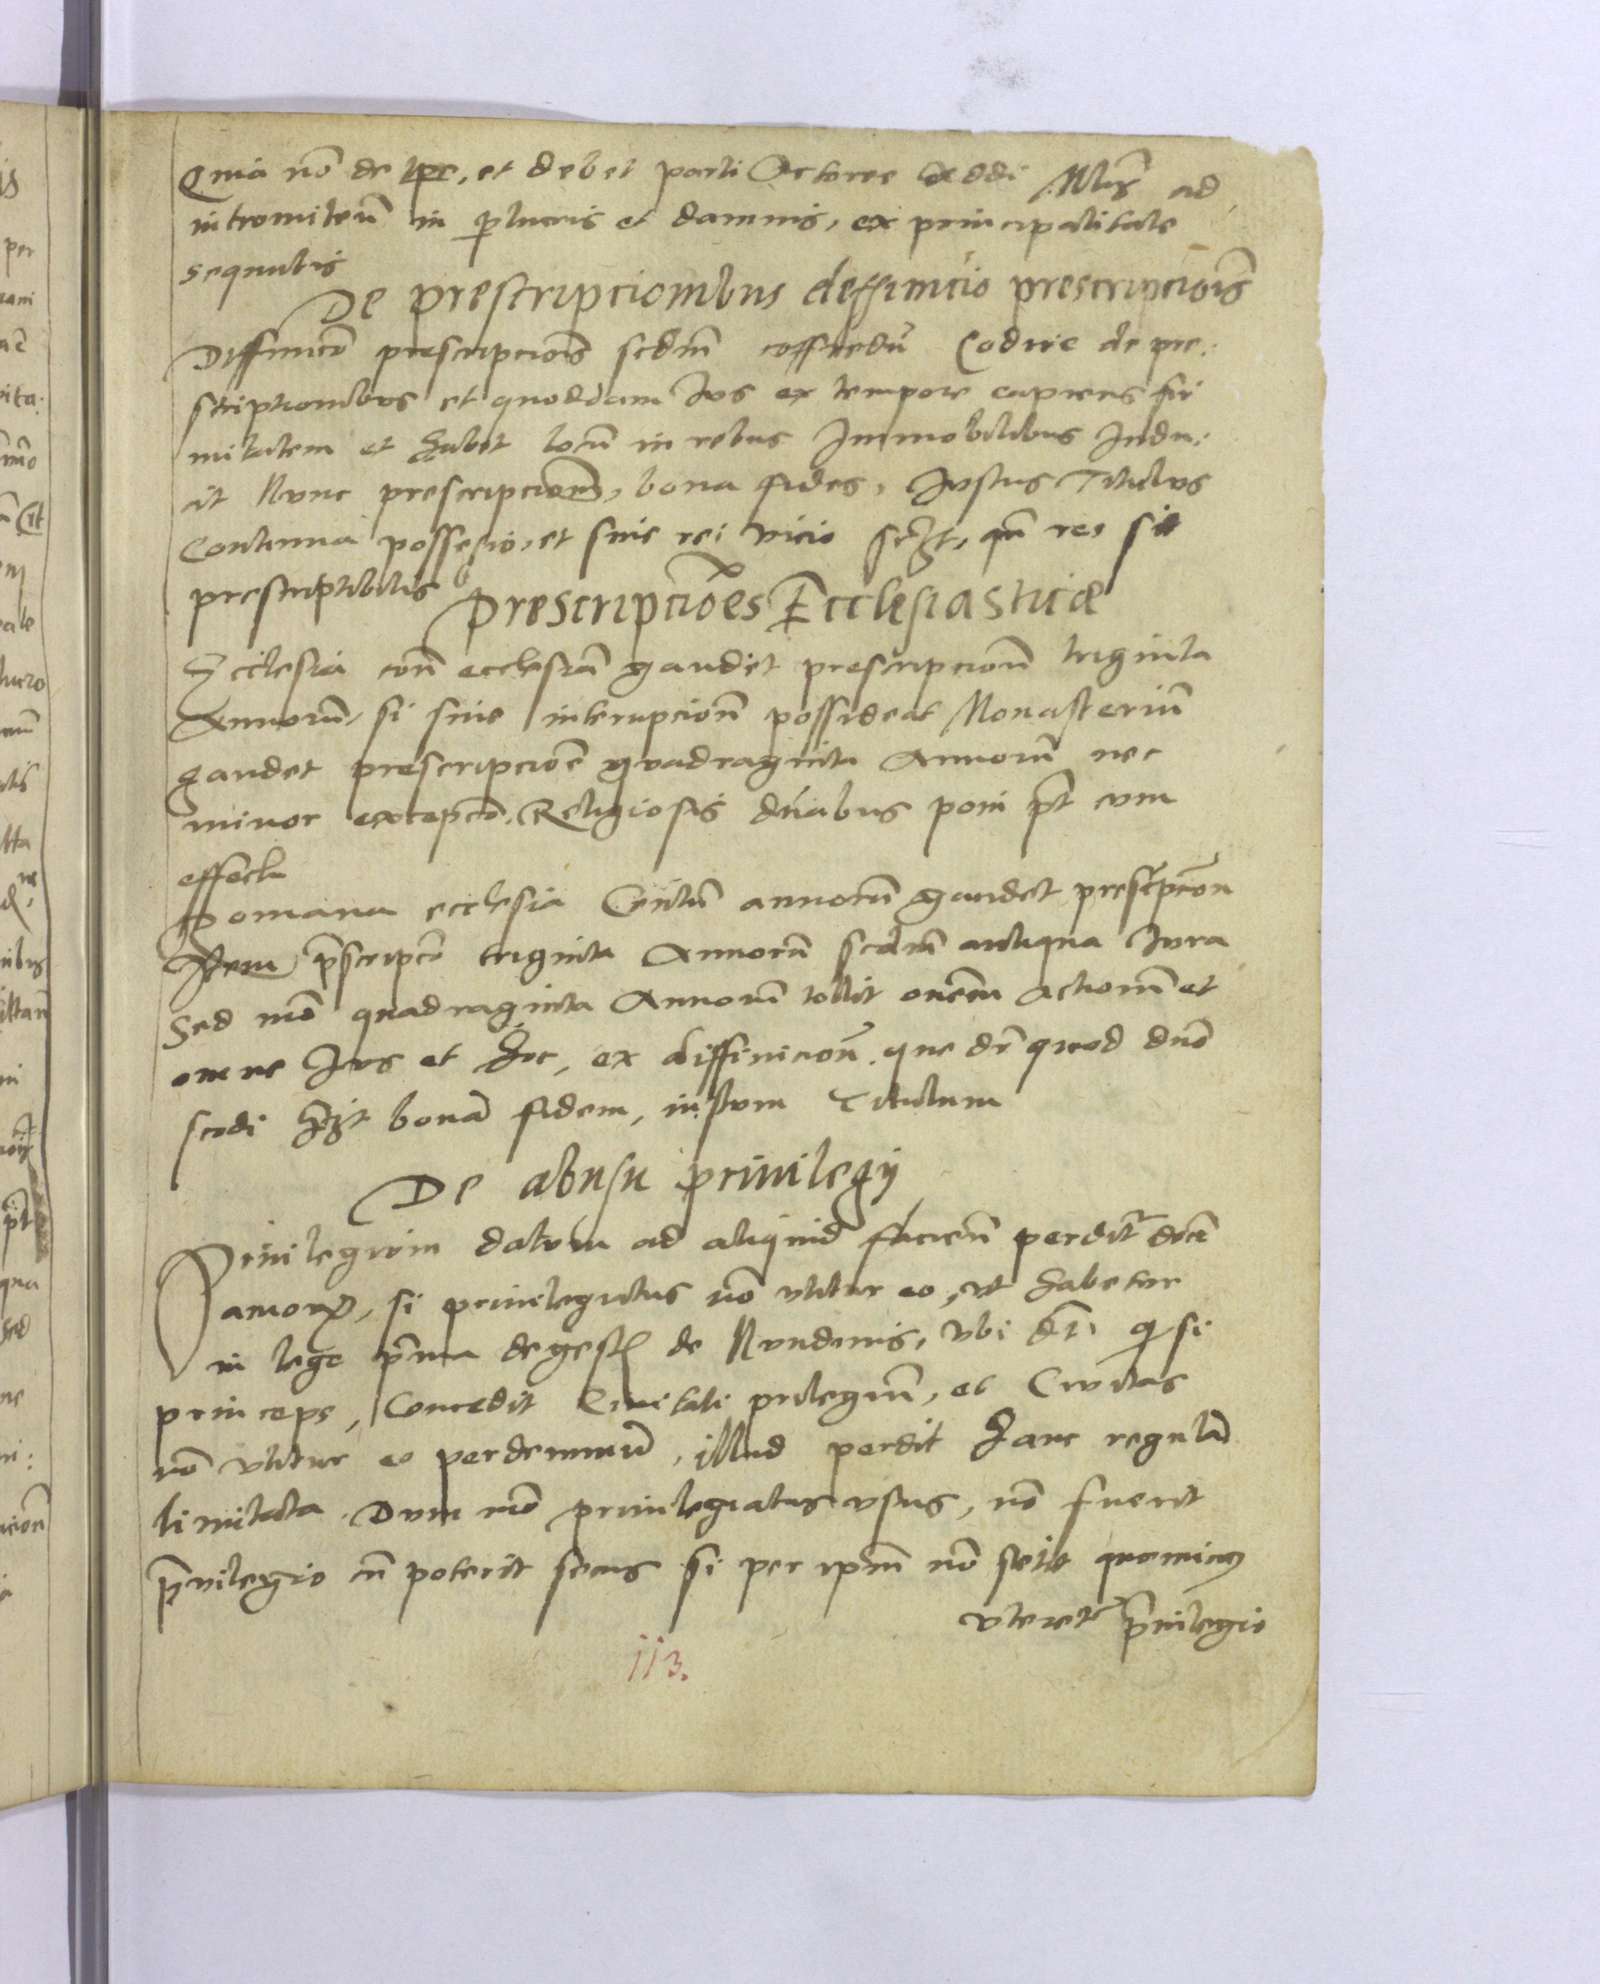 Quia no de et debet parti Actoree Mis ad
intromiteñ in plucris et damnis, ex principalitate
sequutis
De prescripcionibus deffinicio prescripciois
Diffinico prescripciois scdm coffredu Codice de pre:
scriptionibus et quoddam Ius ex tempore capiens fir
mitatem et habet locu in rebus Immobilibus Indu:
cit Nunc prescripcionem, bona fides, Iustus Titulus
Continua possessio, et sine rei vicio qn res sit
prescriptibilis
Prescripcioes Ecclesiasticæ
Ecclesia con ecclesia gaudet prescripcion triginta
Annoru, si sine interupcion possideat Monasteriu
gaudet prescripcioe quadraginta Annoru nec
minor excepco. Religiosis duabus poni pt cum
effectu
Romana ecclesia Centu annoru gaudet prescripcon
Item pscripco triginta Annoru scdum antiqua Iura
Sed mo quadraginta Annoru tollit omem actionem et
omne Ius et hoc, ex diffinicion que dr quod duo
scodi bona fidem, iustum Titulum
De abusu privilegij
Privilegium datum ad aliquid faciend perditr
si privilegiatus no vtitur eo, vt habetur
in lege pma degest de Nundinis, Vbi dr q si
princeps, Concedit Civitati prilegiu, et Civitas
no vtitur eo per illud perdit hanc regula
limitata Dum mo privilegiatus vsus, no fuerit
pvilegio cu poterit secus si per ipm no stetit quominus
vteretr pvilegio
113.